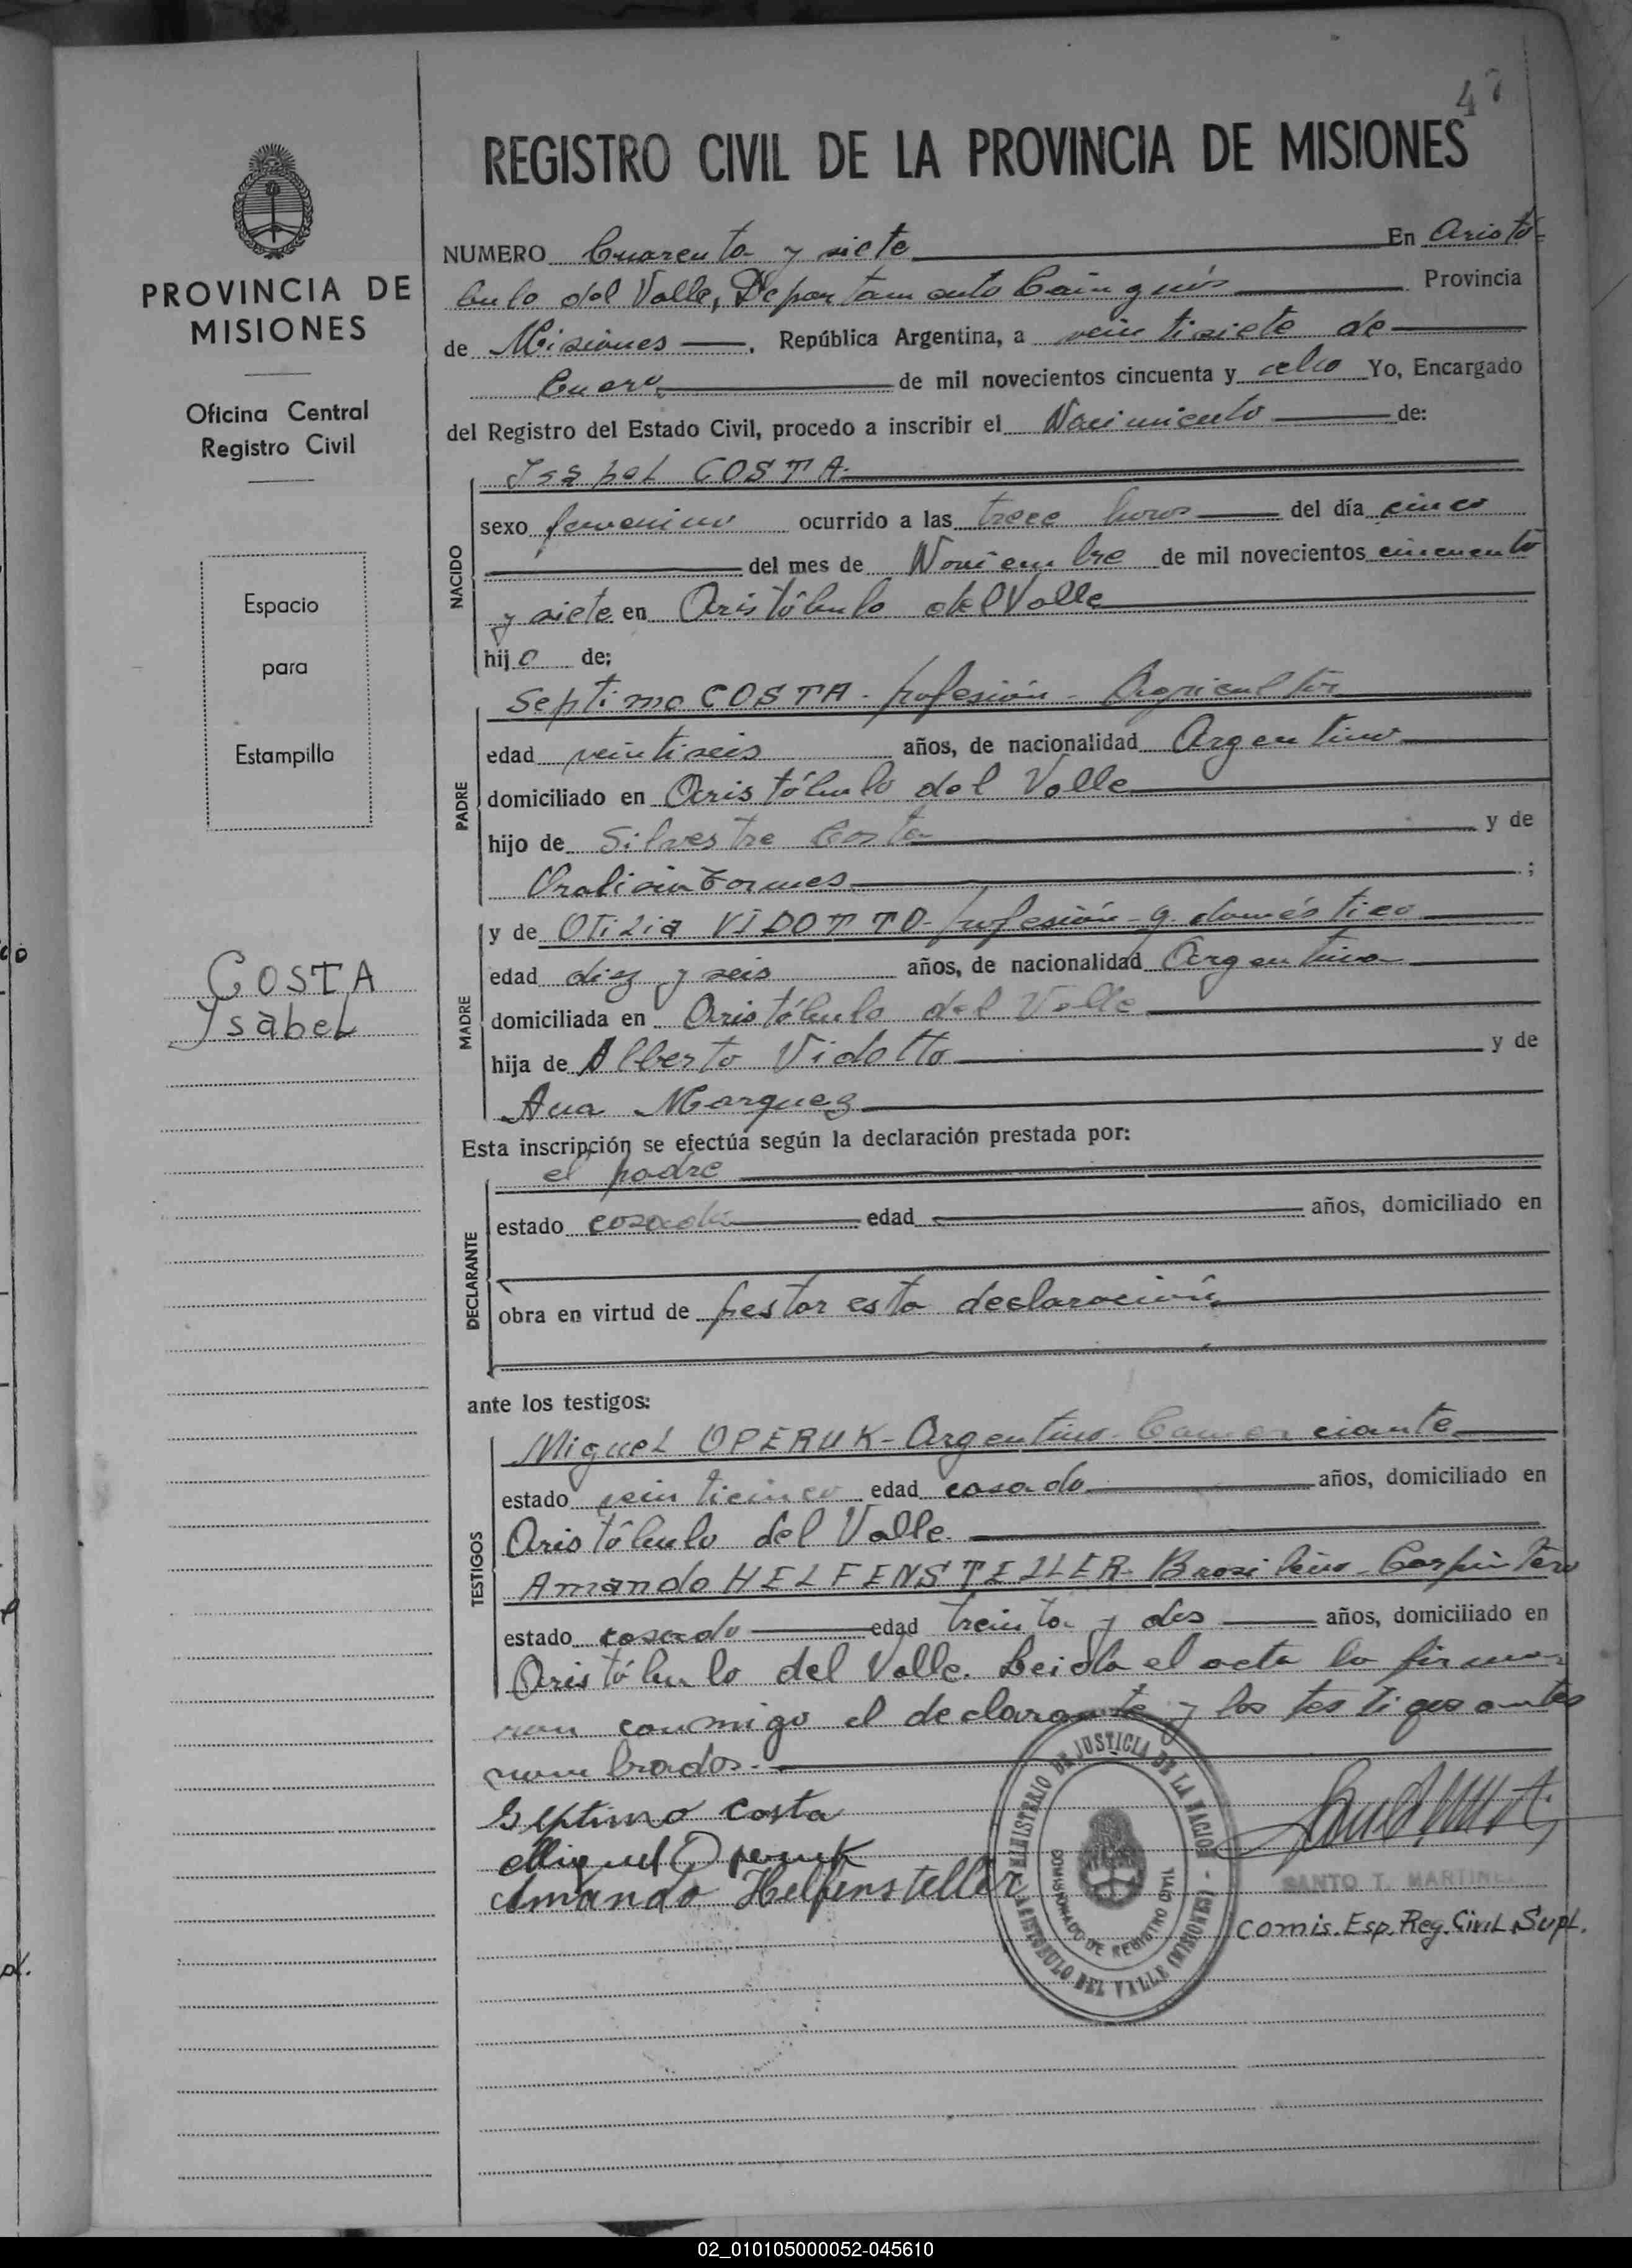 47
REGISTRO CIVIL DE LA PROVINCIA DE MISIONES
PROVINCIA DE
MISIONES
Oficina Central
Registro Civil
Espacio
para
Estampilla
COSTA
Ysabel
NUMERO Cuarenta y siete En Aristó-
bulo del Valle, Departamento Cainguás Provincia
de Misiones, República Argentina, a veintisiete de
Enero de mil novecientos cincuenta y ocho Yo, Encargado
del Registro del Estado Civil, procedo a inscribir el Nacimiento de:
NACIDO
Isabel COSTA.
sexo femenino ocurrido a las trece horas del día cinco
del mes de Noviembre de mil novecientos cincuenta
y siete en Aristóbulo del Valle
hija de:
PADRE
Septimo COSTA - profesión - Agricultor
edad veintiseis años, de nacionalidad Argentino
domiciliado en Aristóbulo del Valle
hijo de Silvestre Costa y de
;
MADRE
y de Otilia VIDOTTO - profesión - q. doméstico
edad diez y seis años, de nacionalidad Argentina
domiciliada en Aristóbulo del Valle
hija de Alberto Vidotto y de
Ana Marquez
Esta inscripción se efectúa según la declaración prestada por:
DECLARANTE
el padre
estado casado edad años, domiciliado en
obra en virtud de prestar esta declaración
ante los testigos:
TESTIGOS
Miguel OPERUK - Argentino - Comerciante
estado veinticinco edad casado años, domiciliado en
Aristóbulo del Valle.
Amando HELFENSTELLER - Brasileño - Carpintero
estado casado edad treinta y dos años, domiciliado en
Aristóbulo del Valle. Leida el acta la firma-
ron conmigo el declarante y los testigos antes
nombrados.
Septimo Costa
Miguel Operuk
Amando Helfensteller
MINISTERIO DE JUSTICIA DE LA NACION - ARISTOBULO DEL VALLE (MISIONES) -
COMISIONADO DE REGISTRO CIVIL
SANTO T. MARTINEZ
Comis. Esp. Reg. Civil Supl.
02_010105000052-045610